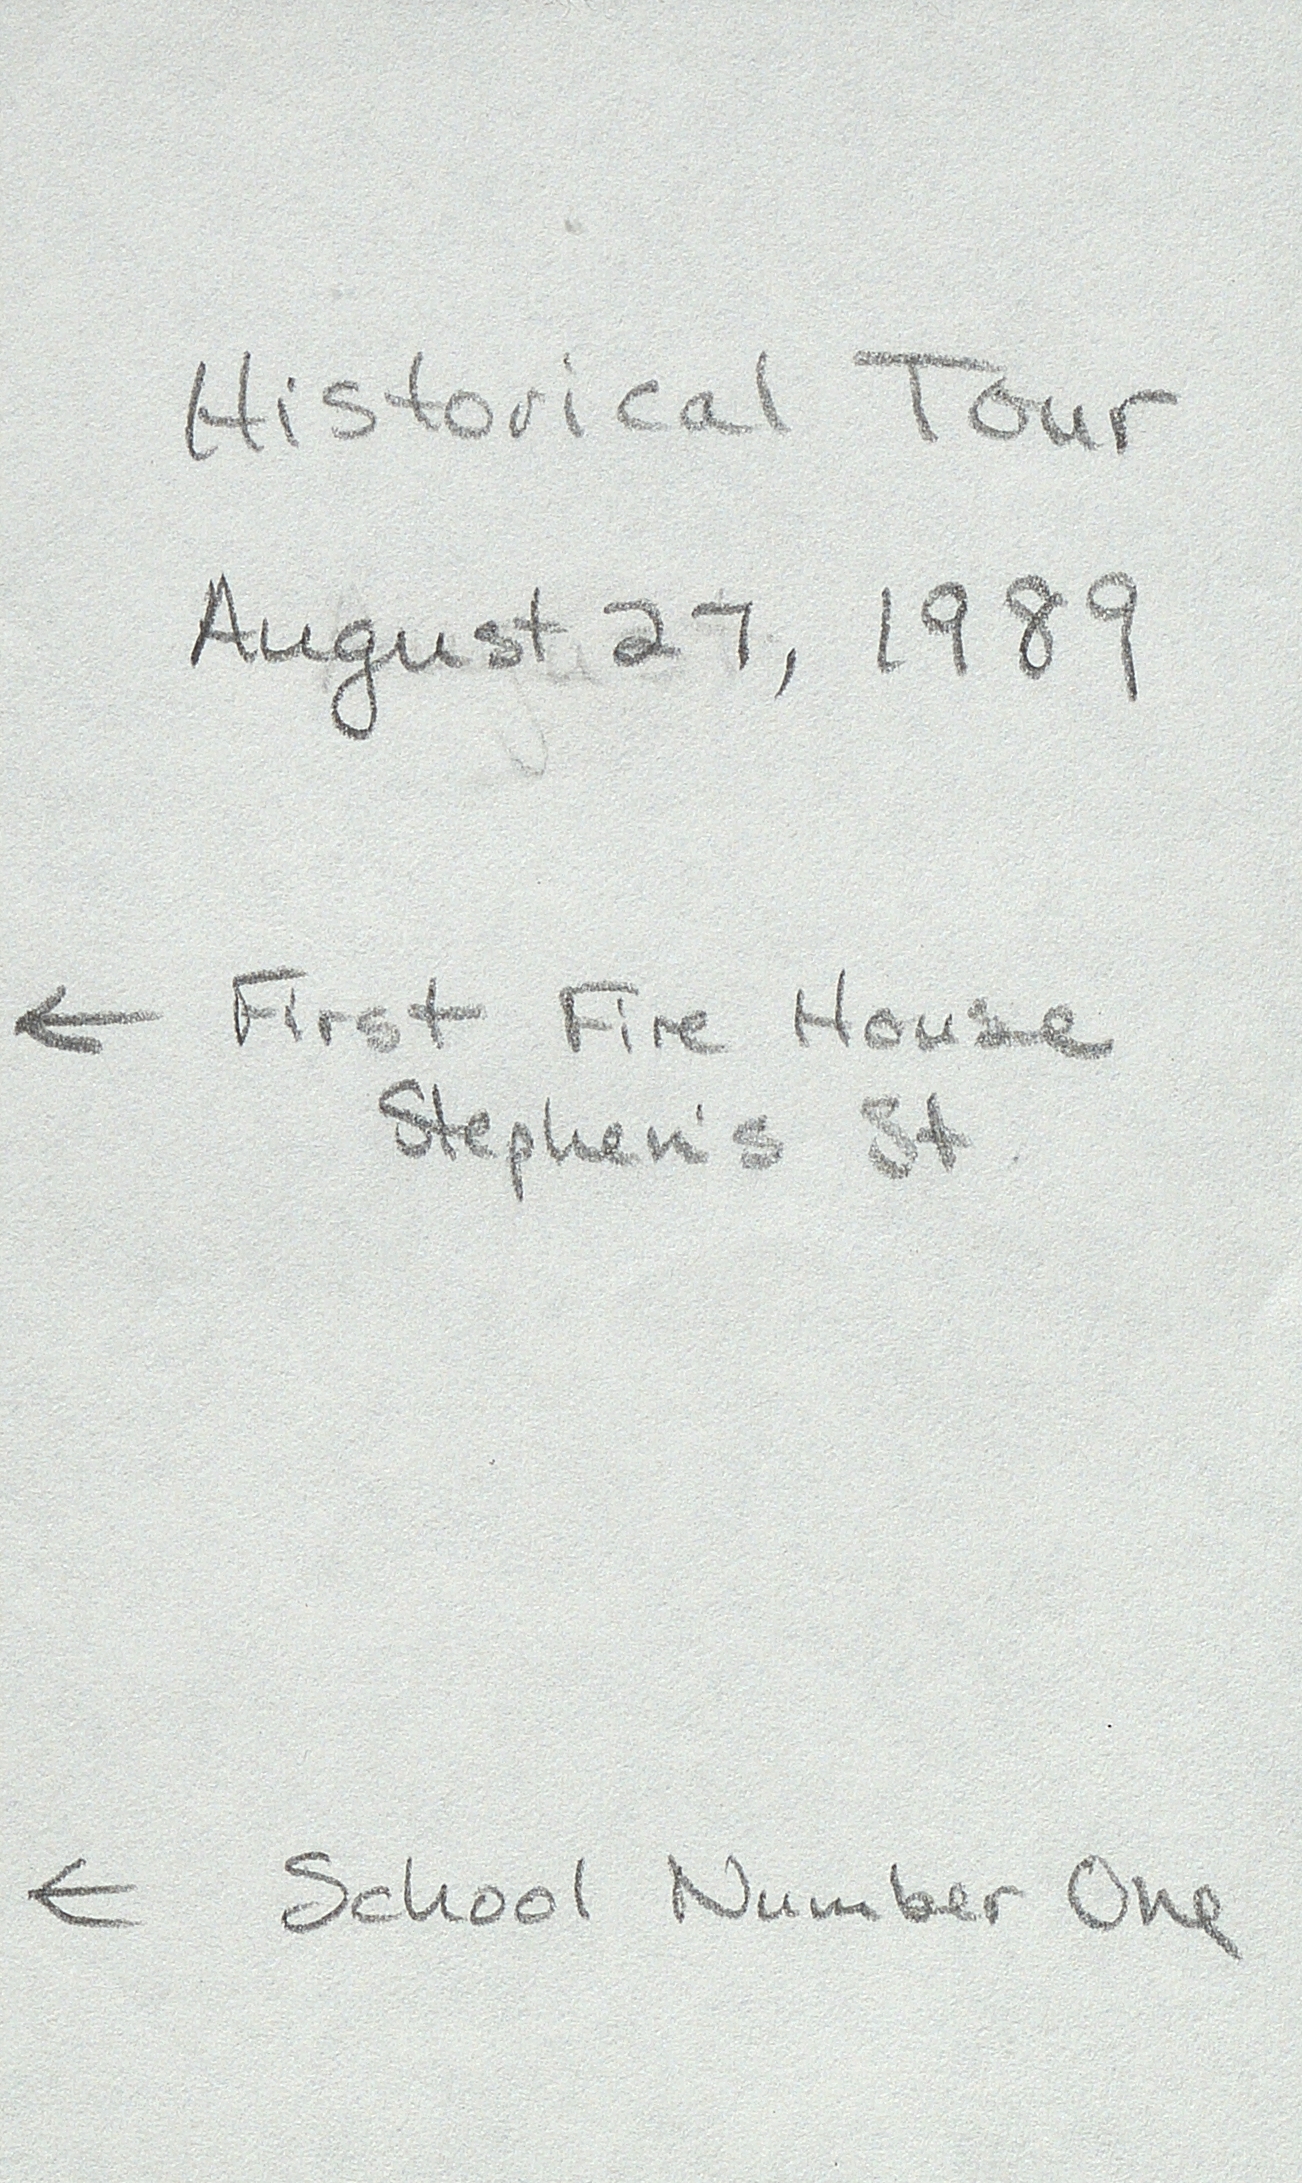 Historical Tour
August 27, 1989
← First Fire House
Stephen's St.
← School Number One